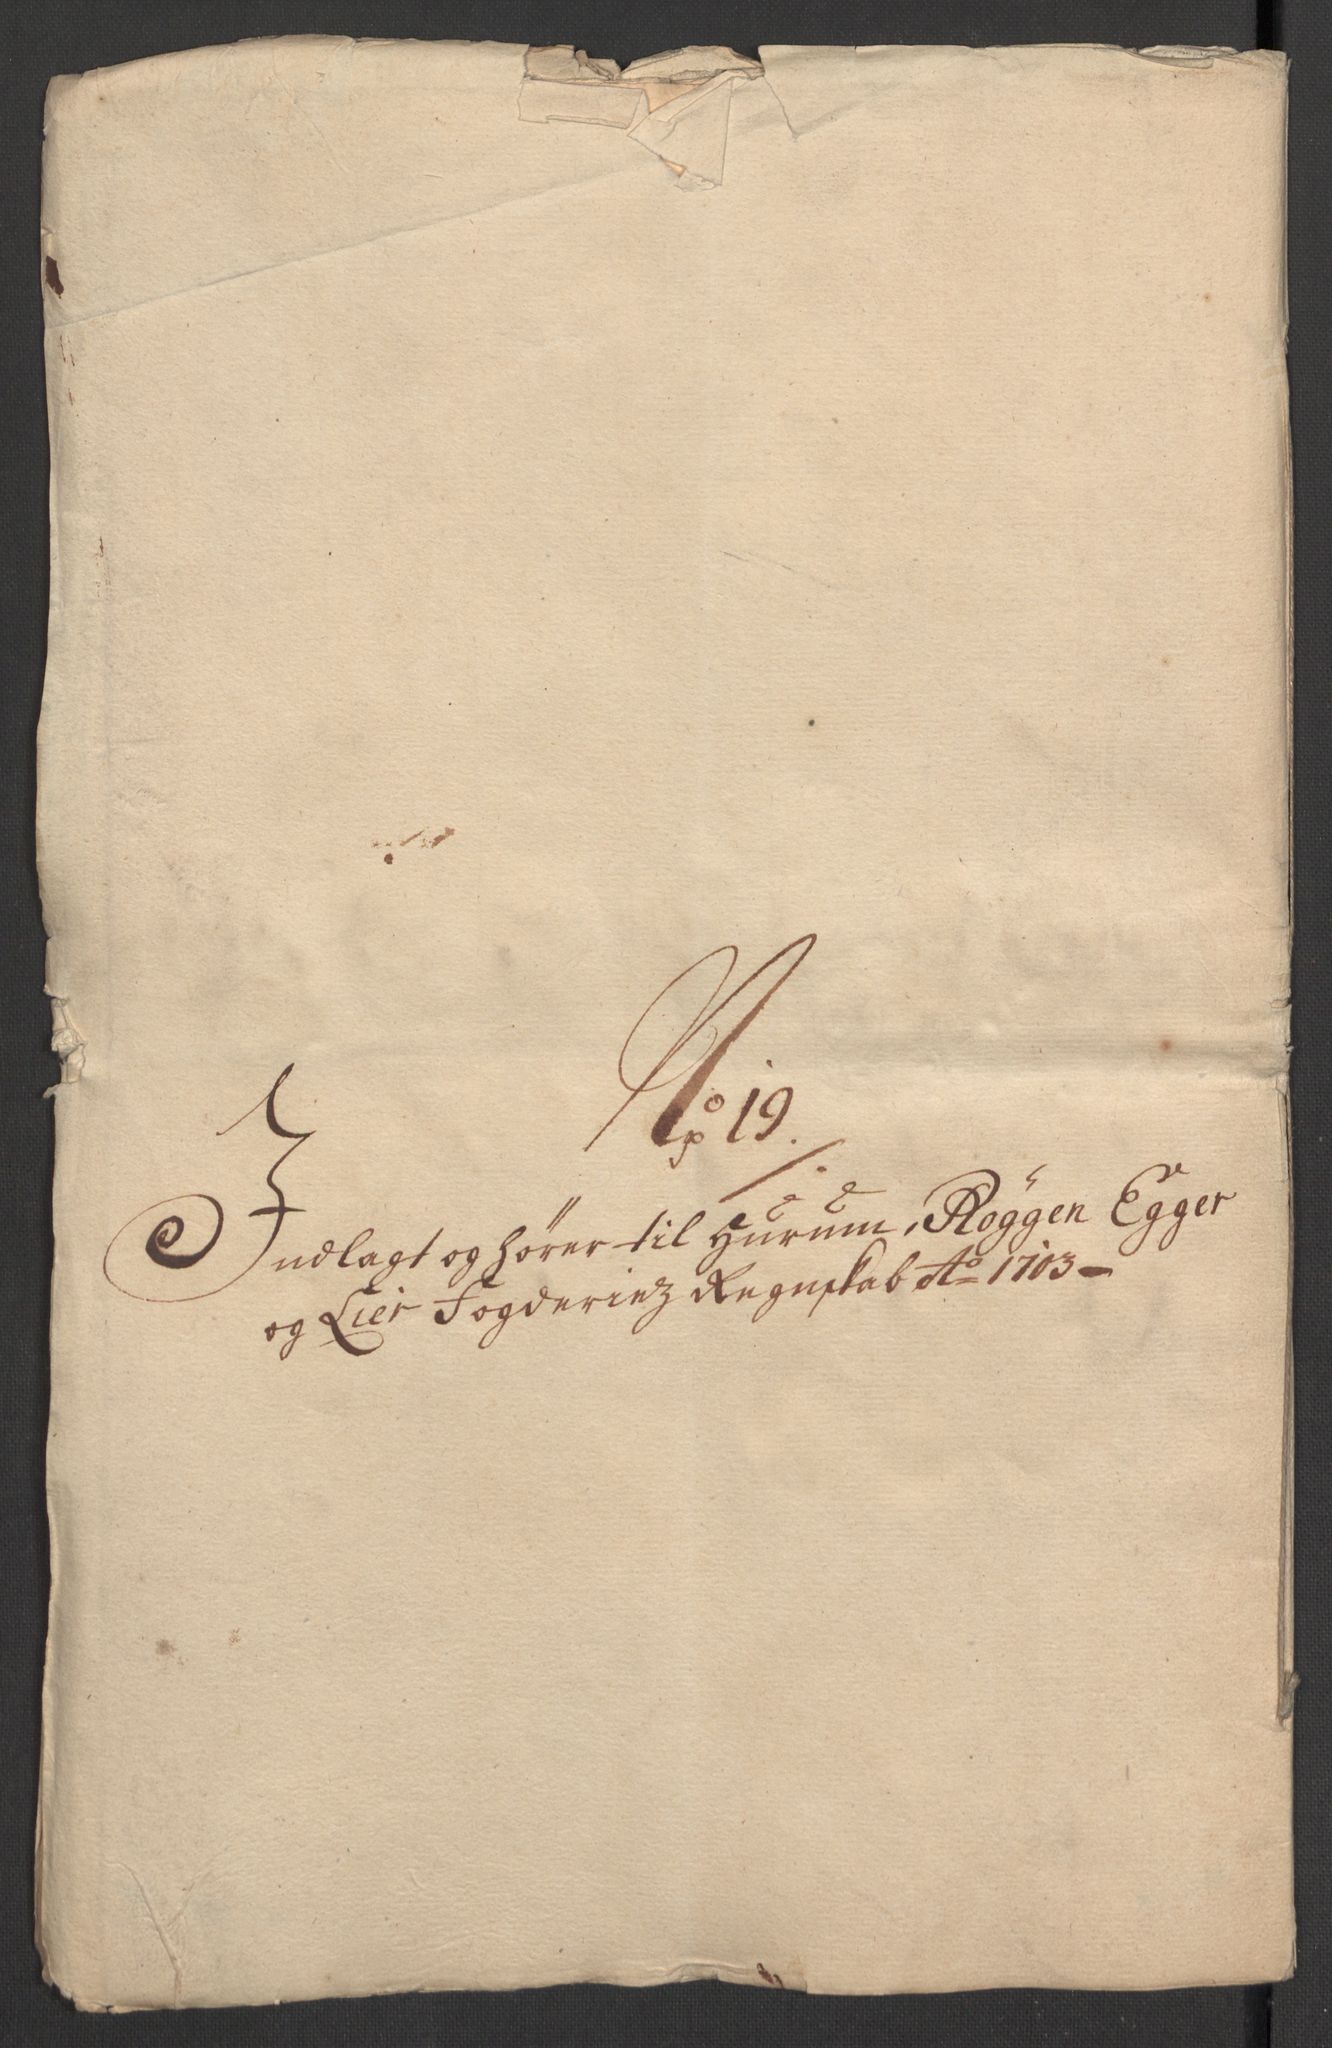 No 19.
Indlagt og hörer til Hurum, Röggen Egger
og Lier Fogderiez Regnskab Ao 1703 –